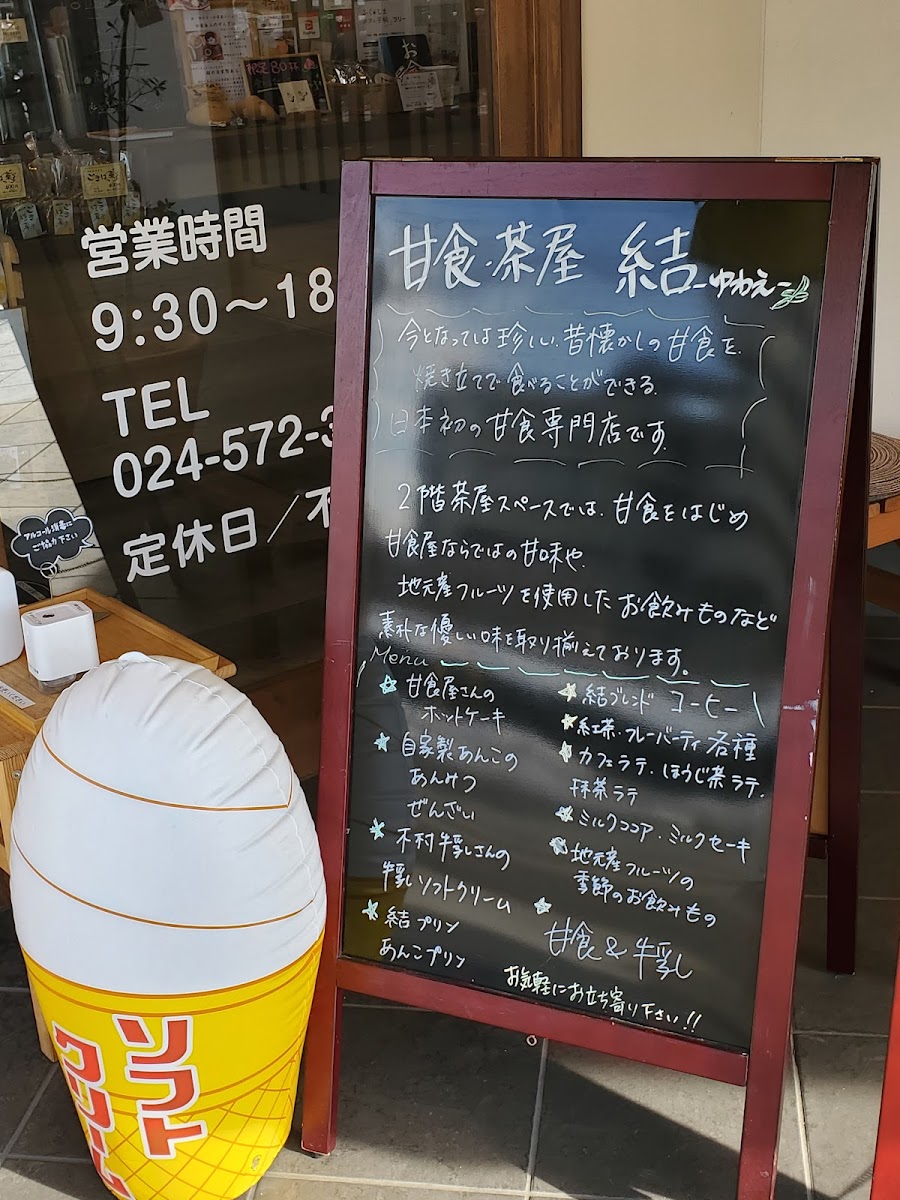 営業時間
9:30～18
TEL
024-572-3
定休日／不
アルコール消毒に
ご協力下さい
甘食・茶屋 結 -ゆわえ-
今となっては珍しい、昔懐かしの甘食を、
焼き立てで食べることができる、
日本初の甘食専門店です。
2階茶屋スペースでは、甘食をはじめ
甘食屋ならではの甘味や、
地元産フルーツを使用したお飲みものなど
素朴な優しい味を取り揃えております。
Menu
甘食屋さんの
ホットケーキ
自家製あんこの
あんみつ
ぜんざい
木村牛乳さんの
牛乳ソフトクリーム
結プリン
あんこプリン
結ブレンド コーヒー
紅茶・フレーバーティ各種
カフェラテ、ほうじ茶ラテ、
抹茶ラテ
ミルクココア・ミルクセーキ
地元産フルーツの
季節のお飲みもの
甘食&牛乳
お気軽にお立ち寄り下さい!!
ソフト
クリーム